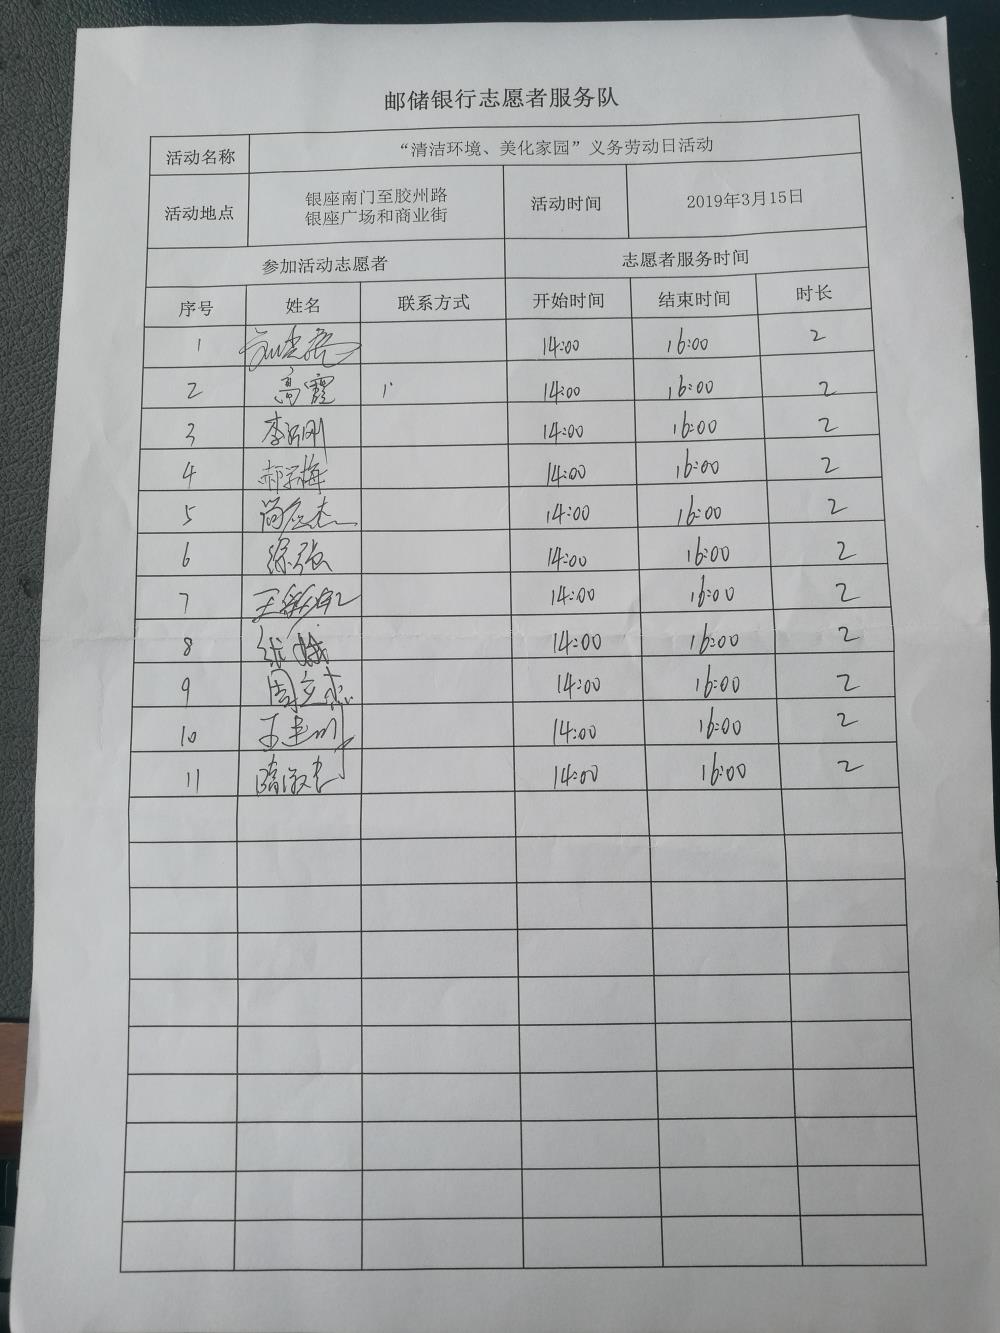 邮储银行志愿者服务队
活动名称 “清洁环境、美化家园”义务劳动日活动
活动地点 银座南门至胶州路 活动时间 2019年3月15日
银座广场和商业街
参加活动志愿者 志愿者服务时间
序号 姓名 联系方式 开始时间 结束时间 时长
1 14:00 16:00 2
2 高霞 14:00 16:00 2
3 14:00 16:00 2
4 14:00 16:00 2
5 14:00 16:00 2
6 徐强 14:00 16:00 2
7 14:00 16:00 2
8 14:00 16:00 2
9 周立杰 14:00 16:00 2
10 14:00 16:00 2
11 14:00 16:00 2